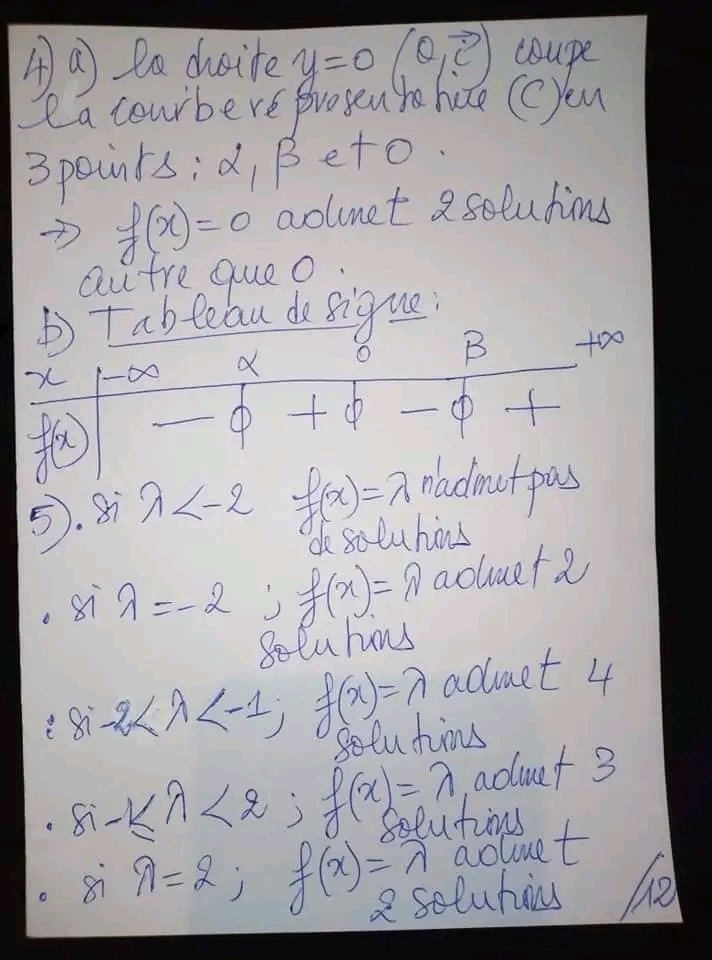 4) a) la droite y=0 (0,i⃗) coupe
la courbe représentative (C) en
3 points : α, β et 0.
→ f(x)=0 admet 2 solutions
autre que 0.
b) Tableau de signe :
x | -∞ α 0 β +∞
f(x) | — ϕ + ϕ — ϕ +
5). si λ<-2 f(x)=λ n'admet pas
de solutions
. si λ=-2 ; f(x)=λ admet 2
solutions
: si -2<λ<-1 ; f(x)=λ admet 4
solutions
. si -1≤λ<2 ; f(x)=λ admet 3
solutions
. si λ=2 ; f(x)=λ admet
2 solutions
/12